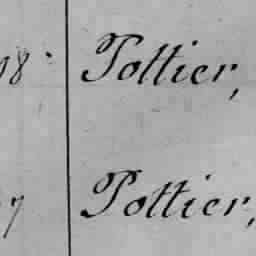 98 Pottier,
7 Pottier,